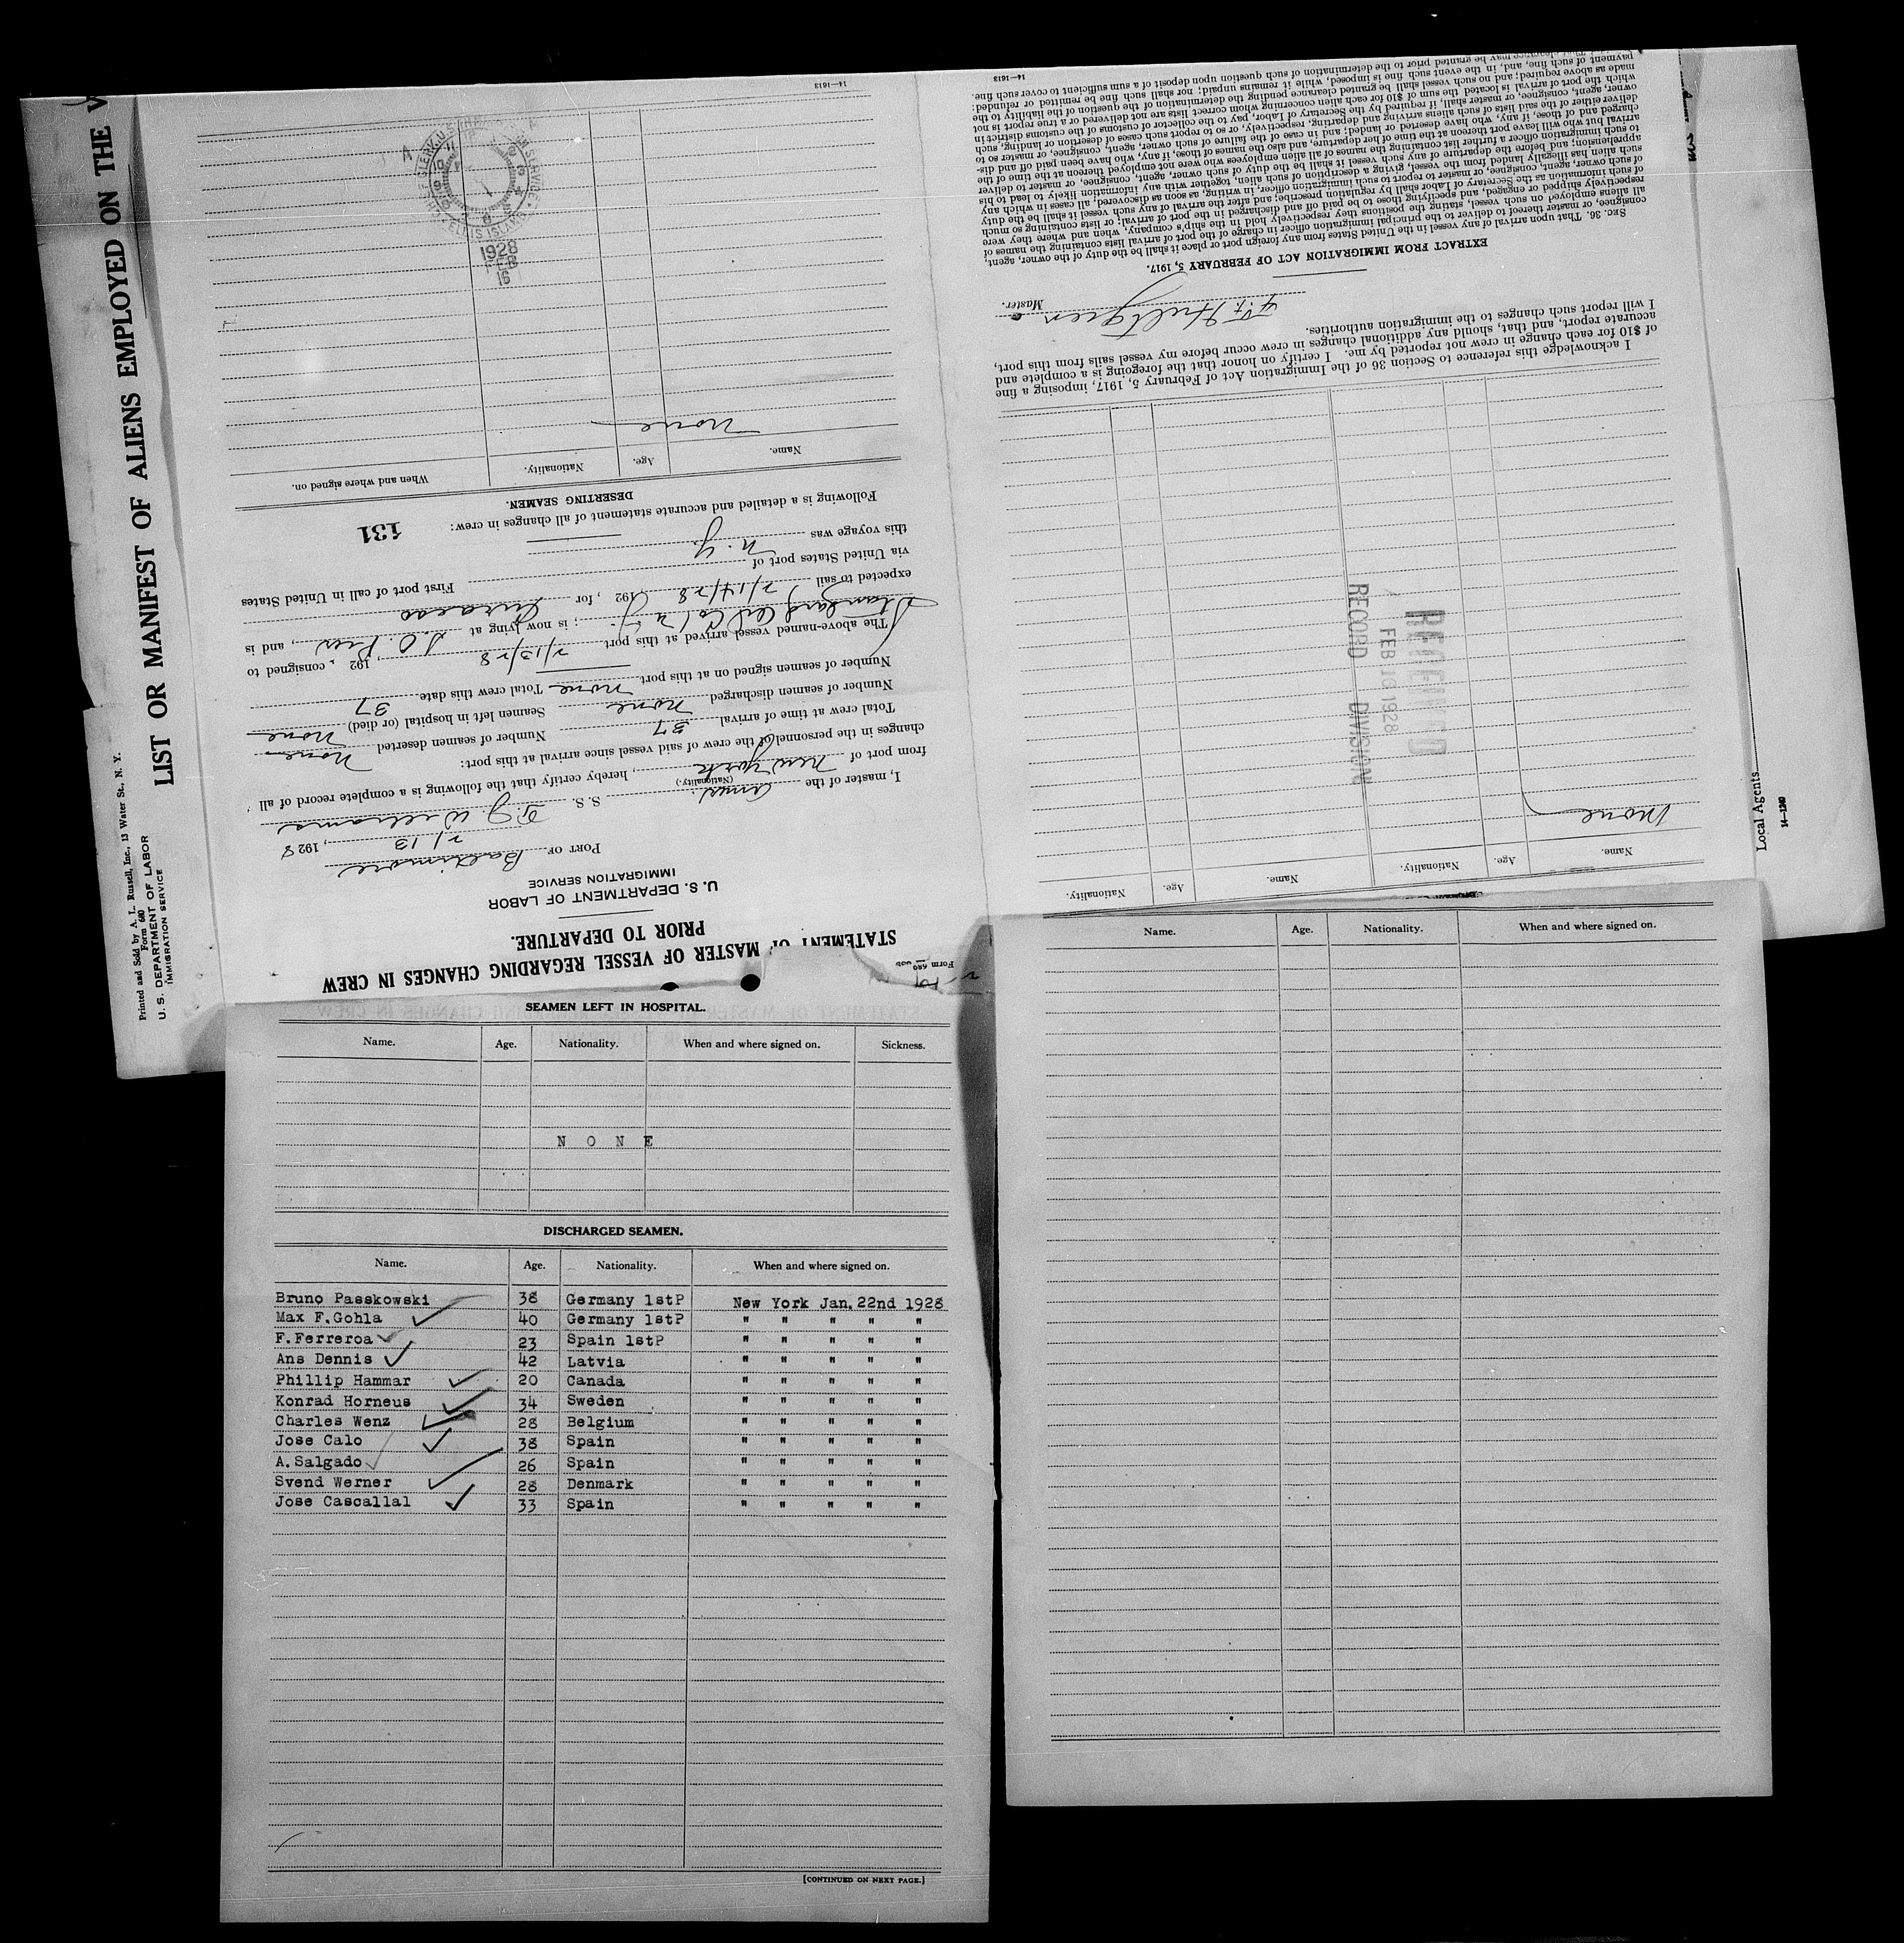 LIST OR MANIFEST OF ALIENS EMPLOYED ON THE
Printed and Sold by A. L. Russell, Inc., 13 Water St., N. Y.
Form 680
U. S. DEPARTMENT OF LABOR
IMMIGRATION SERVICE
Form 689
STATEMENT OF MASTER OF VESSEL REGARDING CHANGES IN CREW
PRIOR TO DEPARTURE.
U. S. DEPARTMENT OF LABOR
IMMIGRATION SERVICE
PORT OF Baltimore
2/13, 1928
I, master of the Amer. S. S. T. J. Williams
(Nationality.)
from port of New York, hereby certify that the following is a complete record of all
changes in the personnel of the crew of said vessel since arrival at this port:
Total crew at time of arrival 37 Number of seamen deserted None
Number of seamen discharged None Seamen left in hospital (or died) None
Number of seamen signed on at this port None Total crew this date 37
The above-named vessel arrived at this port 2/13/28, 192 , consigned to
Standard Oil Co. N. J.; is now lying at S.O. Pier, and is
expected to sail 2/14/28, 192 , for Curacao
via United States port of First port of call in United States
this voyage was N. Y.
Following is a detailed and accurate statement of all changes in crew:
131
DESERTING SEAMEN.
Name. Age. Nationality. When and where signed on.
None
ELLIS ISLAND
1928
FEB
16
14—1613
Name. Age. Nationality. Name. Age. Nationality.
None
RECEIVED
FEB 16 1928
RECORD DIVISION
I acknowledge this reference to Section 36 of the Immigration Act of February 5, 1917, imposing a fine
of $10 for each change in crew not reported by me. I certify on honor that the foregoing is a complete and
accurate report, and that, should any additional changes in crew occur before my vessel sails from this port,
I will report such changes to the immigration authorities.
Hultgren
Master.
EXTRACT FROM IMMIGRATION ACT OF FEBRUARY 5, 1917.
SEC. 36. That upon arrival of any vessel in the United States from any foreign port or place it shall be the duty of the owner, agent,
consignee, or master thereof to deliver to the principal immigration officer in charge of the port of arrival lists containing the names of
all aliens employed on such vessel, stating the positions they respectively hold in the ship's company, when and where they were
respectively shipped or engaged, and specifying those to be paid off and discharged in the port of arrival; or lists containing so much
of such information as the Secretary of Labor shall by regulation prescribe; and after the arrival of any such vessel it shall be the duty
of such owner, agent, consignee, or master to report to such immigration officer, in writing, as soon as discovered, all cases in which any
such alien has illegally landed from the vessel, giving a description of such alien, together with any information likely to lead to his
apprehension; and before the departure of any such vessel it shall be the duty of such owner, agent, consignee, or master to deliver
to such immigration officer a further list containing the names of all alien employees who were not employed thereon at the time of the
arrival but who will leave port thereon at the time of her departure, and also the names of those, if any, who have been paid off and dis-
charged and of those, if any, who have deserted or landed; and in case of the failure of such owner, agent, consignee, or master so to
deliver either of the said lists of such aliens arriving and departing, respectively, or so to report such cases of desertion or landing, such
owner, agent, consignee, or master shall, if required by the Secretary of Labor, pay to the collector of customs of the customs district in
which the port of arrival is located the sum of $10 for each alien concerning whom correct lists are not delivered or a true report is not
made as above required; and no such vessel shall be granted clearance pending the determination of the question of the liability to the
payment of such fine, and, in the event such fine is imposed, while it remains unpaid; nor shall such fine be remitted or refunded:
may be granted prior to the determination of such question upon deposit of a sum sufficient to cover such fine.
14—1613
Local Agents
14—1240
SEAMEN LEFT IN HOSPITAL.
Name. Age. Nationality. When and where signed on. Sickness.
N O N E
DISCHARGED SEAMEN.
Name. Age. Nationality. When and where signed on.
Bruno Passkowski 38 Germany 1stP New York Jan. 22nd 1928
Max F.Gohla 40 Germany 1stP " " " " "
F.Ferreroa 23 Spain 1stP " " " " "
Ans Dennis 42 Latvia " " " " "
Phillip Hammar 20 Canada " " " " "
Konrad Horneus 34 Sweden " " " " "
Charles Wenz 28 Belgium " " " " "
Jose Calo 38 Spain " " " " "
A.Salgado 26 Spain " " " " "
Svend Werner 28 Denmark " " " " "
Jose Cascallal 33 Spain " " " " "
[CONTINUED ON NEXT PAGE.]
Name. Age. Nationality. When and where signed on.